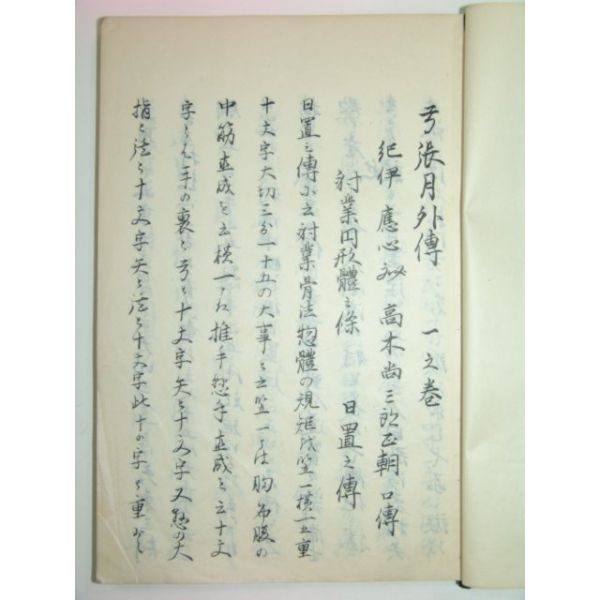 弓張月外傳 一之巻
紀伊 應心 高木尚三郎正朝 口傳
射業円形體之條 日置之傳
日置之傳小云射業骨法惣體の規矩竪一横一五重
十文字大切三分一十五の大事と云竪一とは胸 腹の
中筋直成を云横一とは推手 手直成を云十文
字とは手の裏と弓と十文字矢と十文字又 の大
指と 十文字矢と 十文字此十の字 重